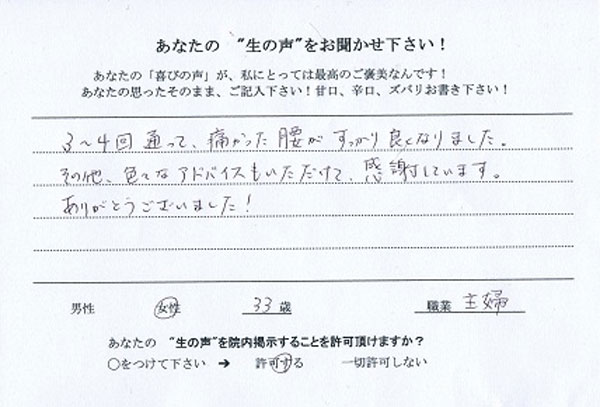 あなたの “生の声”をお聞かせ下さい！
あなたの「喜びの声」が、私にとっては最高のご褒美なんです！
あなたの思ったそのまま、ご記入下さい！甘口、辛口、ズバリお書き下さい！
3～4回通って、痛かった腰がすっかり良くなりました。
その他、色々なアドバイスもいただけて、感謝しています。
ありがとうございました！
男性 女性 33歳 職業 主婦
あなたの “生の声”を院内掲示することを許可頂けますか？
○をつけて下さい ➔ 許可する 一切許可しない